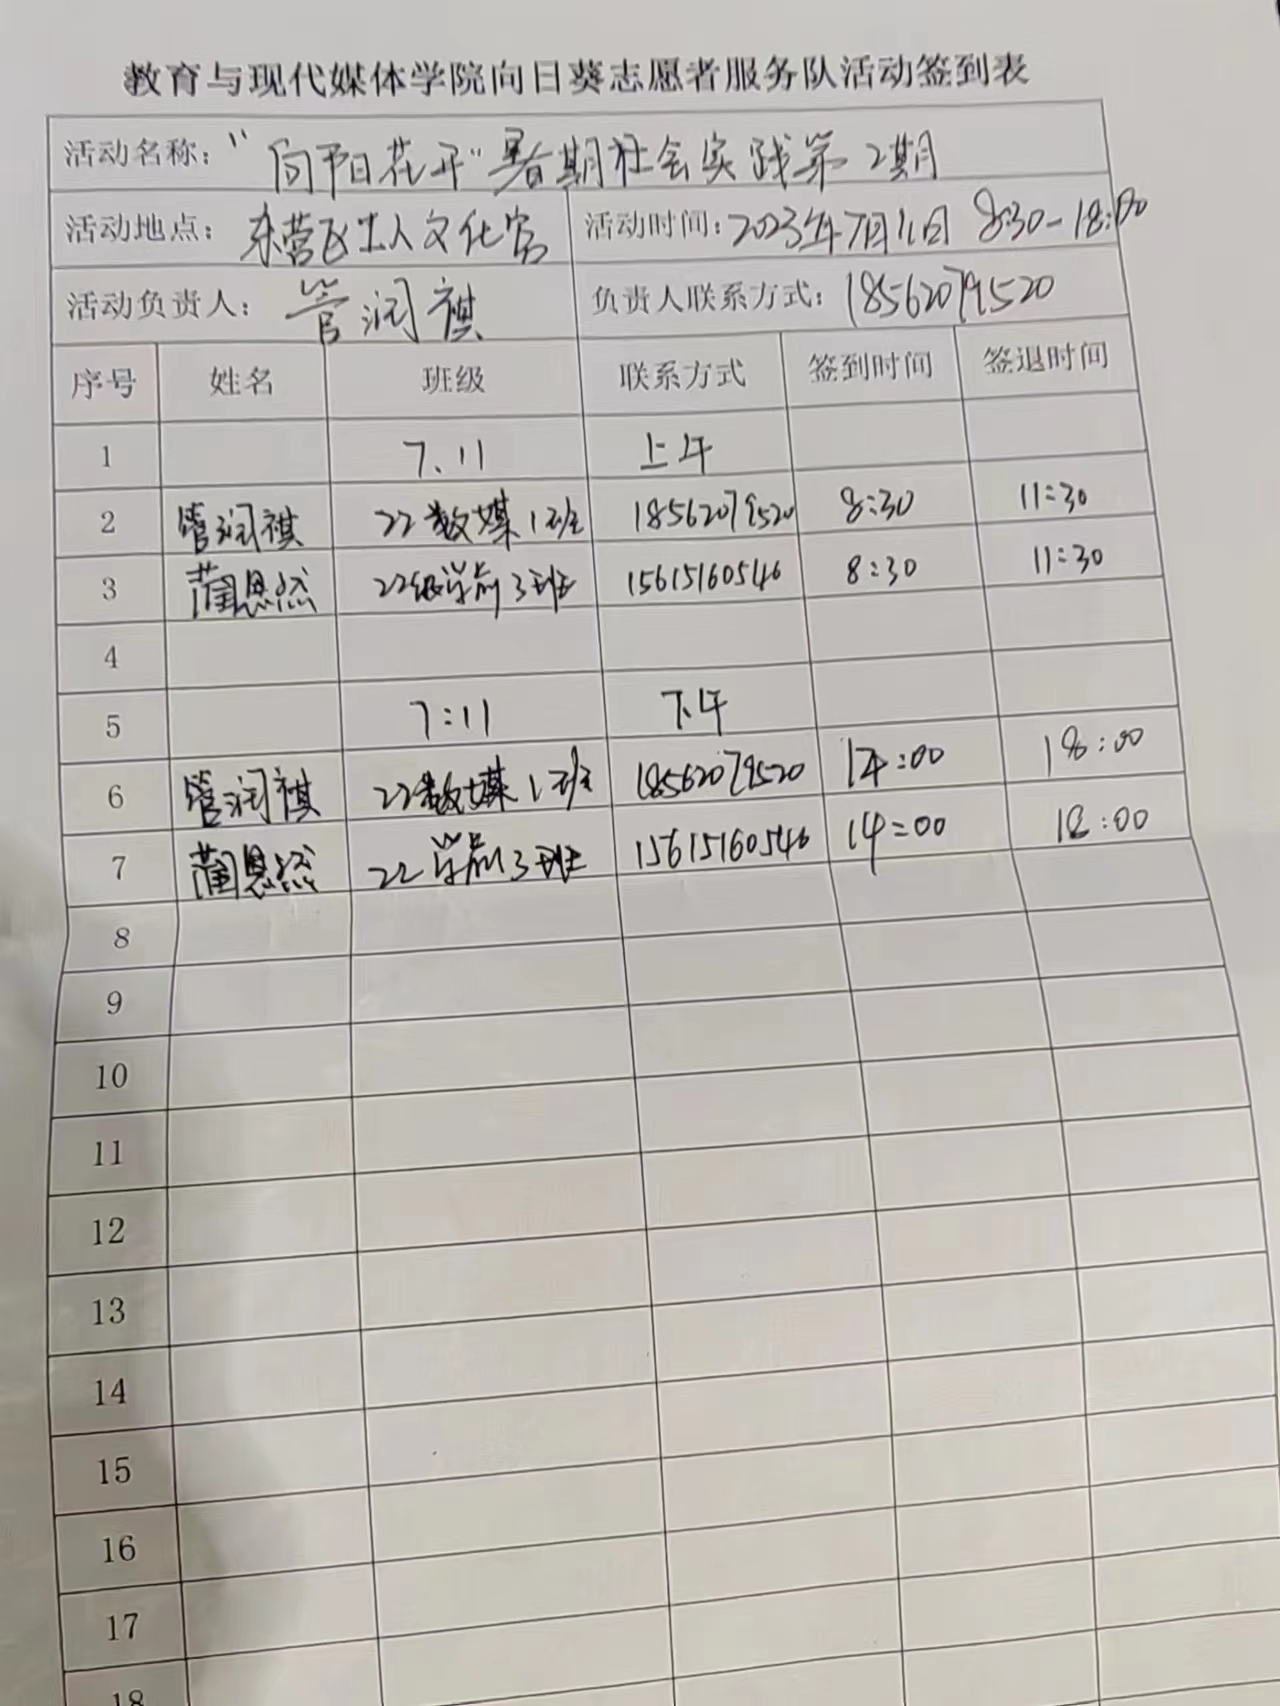 教育与现代媒体学院向日葵志愿者服务队活动签到表
活动名称：“向阳花开”暑期社会实践第2期
活动地点：东营区工人文化宫 活动时间：2023年7月11日 8:30-18:00
活动负责人：管润祺 负责人联系方式：18562079520
序号 姓名 班级 联系方式 签到时间 签退时间
1 7.11 上午
2 管润祺 22数媒1班 18562079520 8:30 11:30
3 蔺恩然 22级学前3班 15615160546 8:30 11:30
4
5 7:11 下午
6 管润祺 22数媒1班 18562079520 14:00 18:00
7 蔺恩然 22学前3班 15615160546 14:00 18:00
8
9
10
11
12
13
14
15
16
17
18